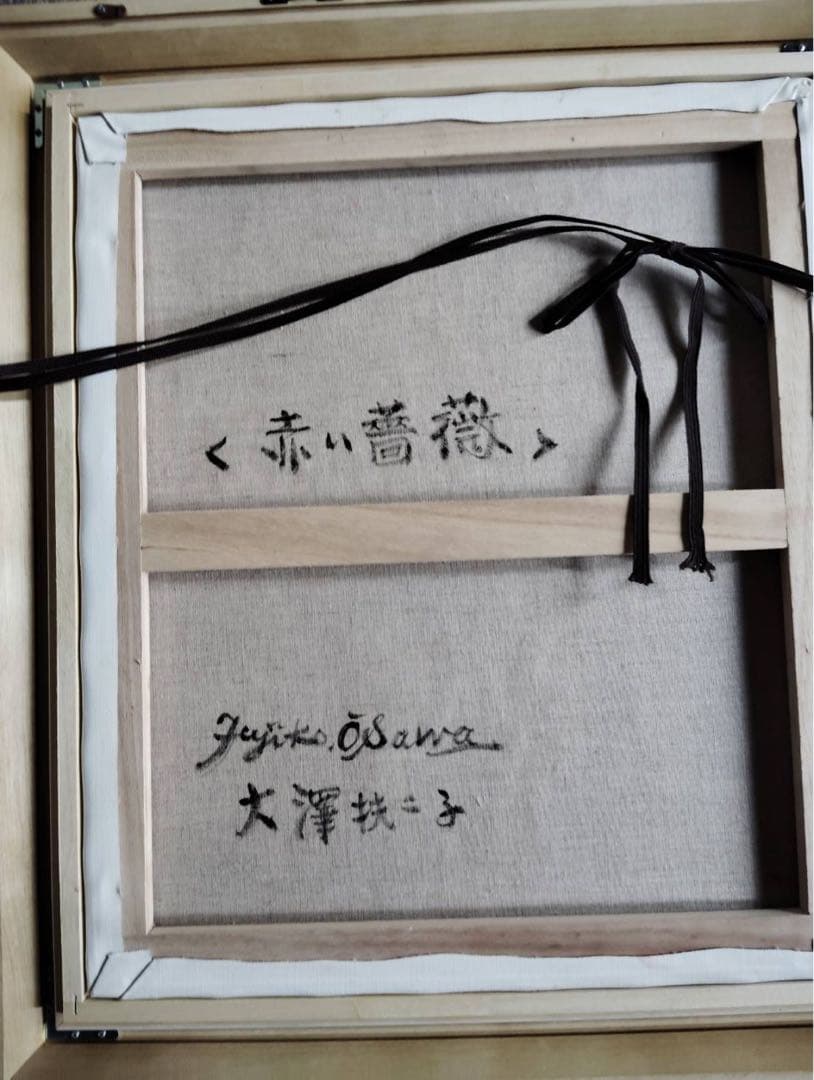 <赤い薔薇>
Fujiko.Ōsawa
大澤扶二子